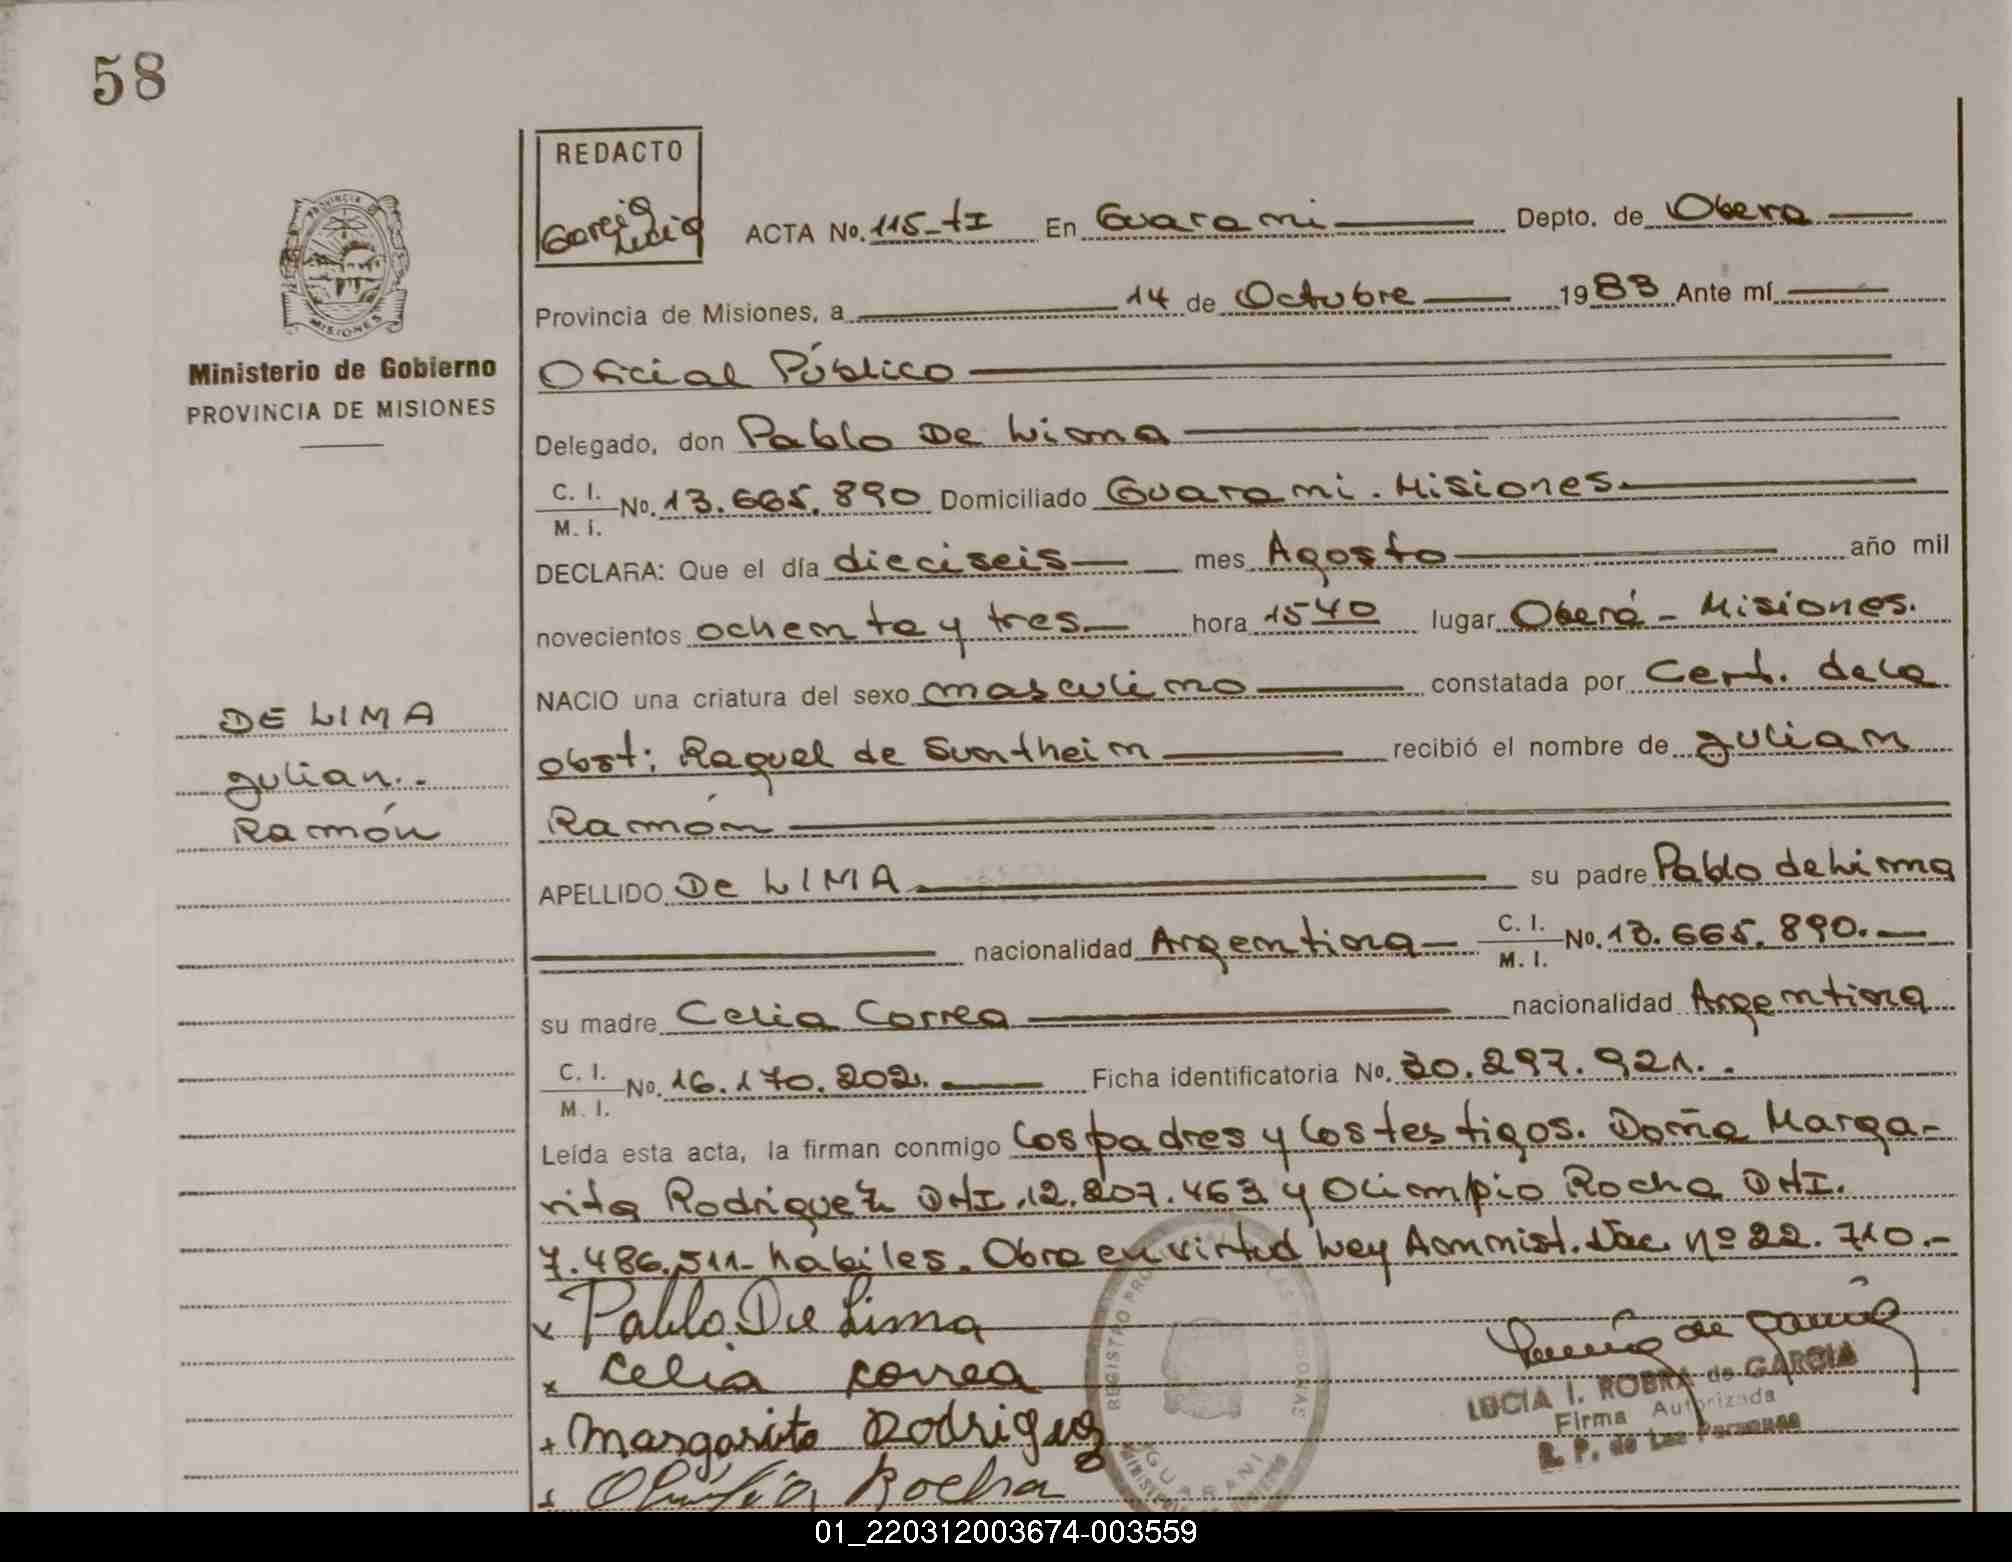 58
REDACTO
García Lucia
ACTA No. 115-tI En Guarani Depto. de Obera
Provincia de Misiones, a 14 de Octubre 1983 Ante mí
PROVINCIA DE
MISIONES
Ministerio de Gobierno
PROVINCIA DE MISIONES
Oficial Público
Delegado, don Pablo De Lima
C. I.
M. I. No. 13.665.890 Domiciliado Guarani. Misiones
DECLARA: Que el día dieciseis mes Agosto año mil
novecientos ochenta y tres hora 1540 lugar Oberá - Misiones.
NACIO una criatura del sexo masculino constatada por Cert. de la
obst: Raquel de Suntheim recibió el nombre de Julian
Ramón
DE LIMA
Julian..
Ramón
APELLIDO De LIMA su padre Pablo de Lima
nacionalidad Argentina C. I.
M. I. No. 13.665.890.
su madre Celia Correa nacionalidad Argentina
C. I.
M. I. No. 16.170.202. Ficha identificatoria No. 30.297.921..
Leída esta acta, la firman conmigo los padres y los testigos. Doña Marga-
rita Rodriguez DNI.12.207.463 y Olimpio Rocha DNI.
7.486.511- habiles. Obra en virtud Ley Admnist. Nac. nº 22.710.-
x Pablo De Lima
x Celia Correa
x Margarita Rodriguez
x Rocha
REGISTRO PROVINCIAL DE LAS PERSONAS
GUARANI
LUCIA I. ROBRA de GARCIA
Firma Autorizada
R. P. de Las Personas
01_220312003674-003559